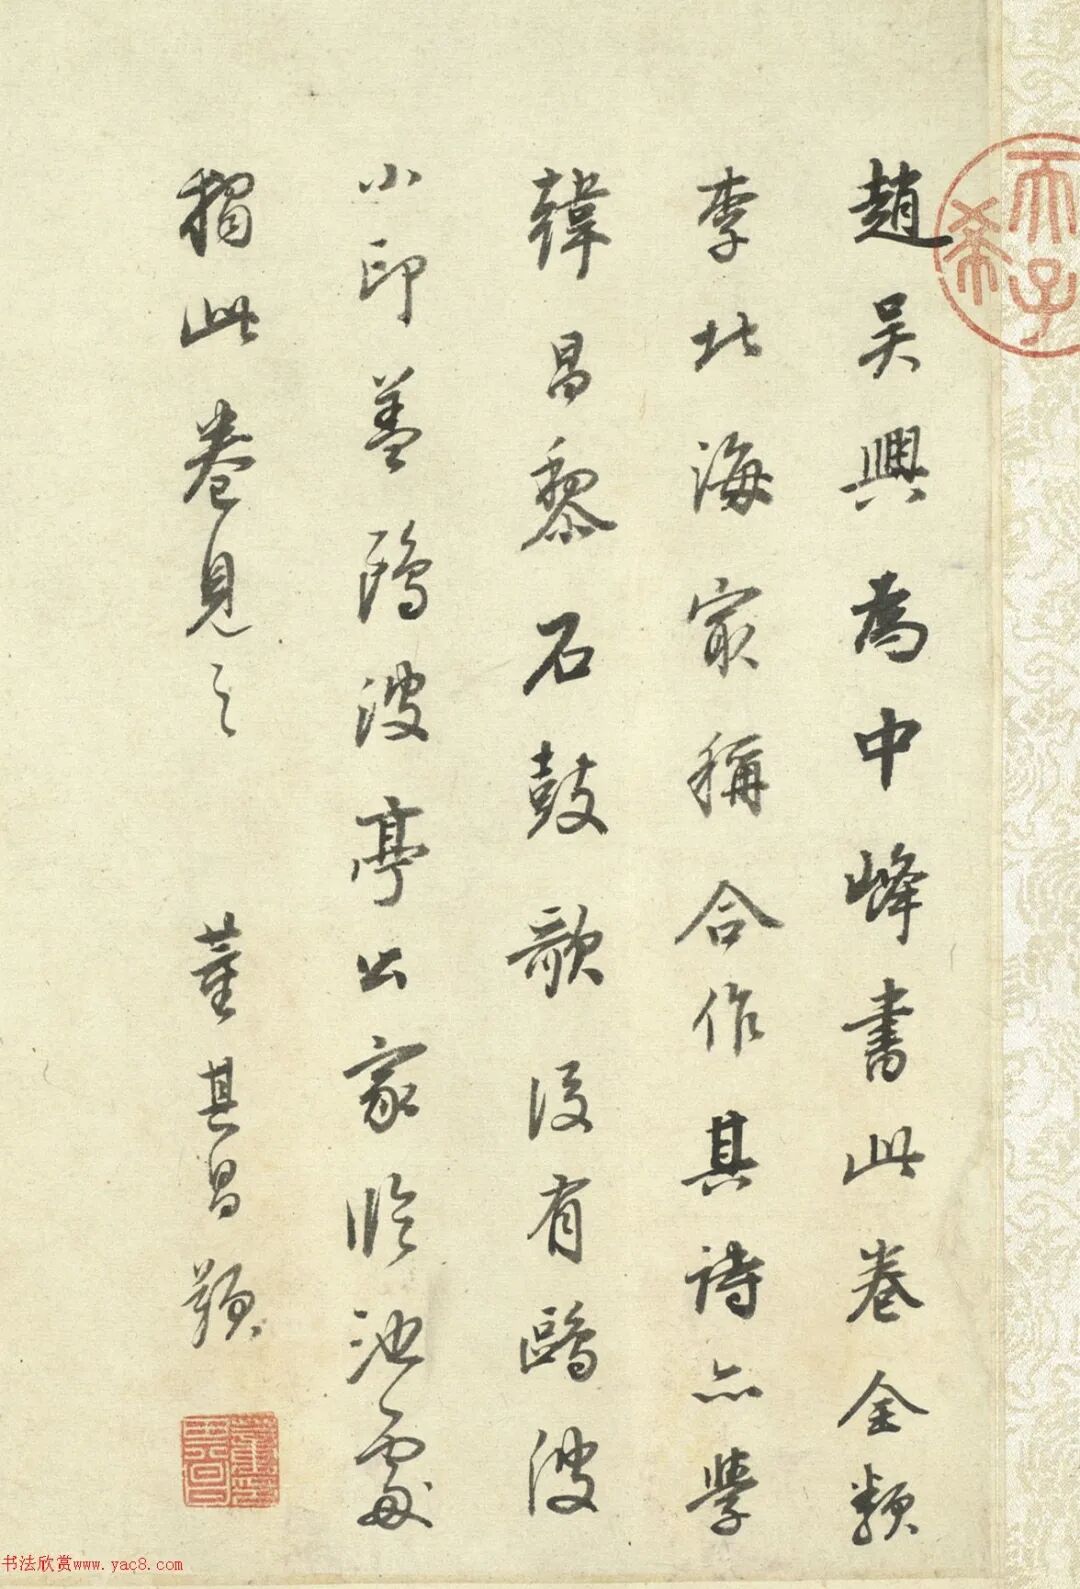 趙吳興為中峰書此卷全類
李北海最稱合作其詩亦學
韓昌黎石鼓歌後有鷗波
小印蓋鷗波亭公家臨池處
獨此卷見之 董其昌題
天子
希
董其昌印
书法欣赏www.yac8.com